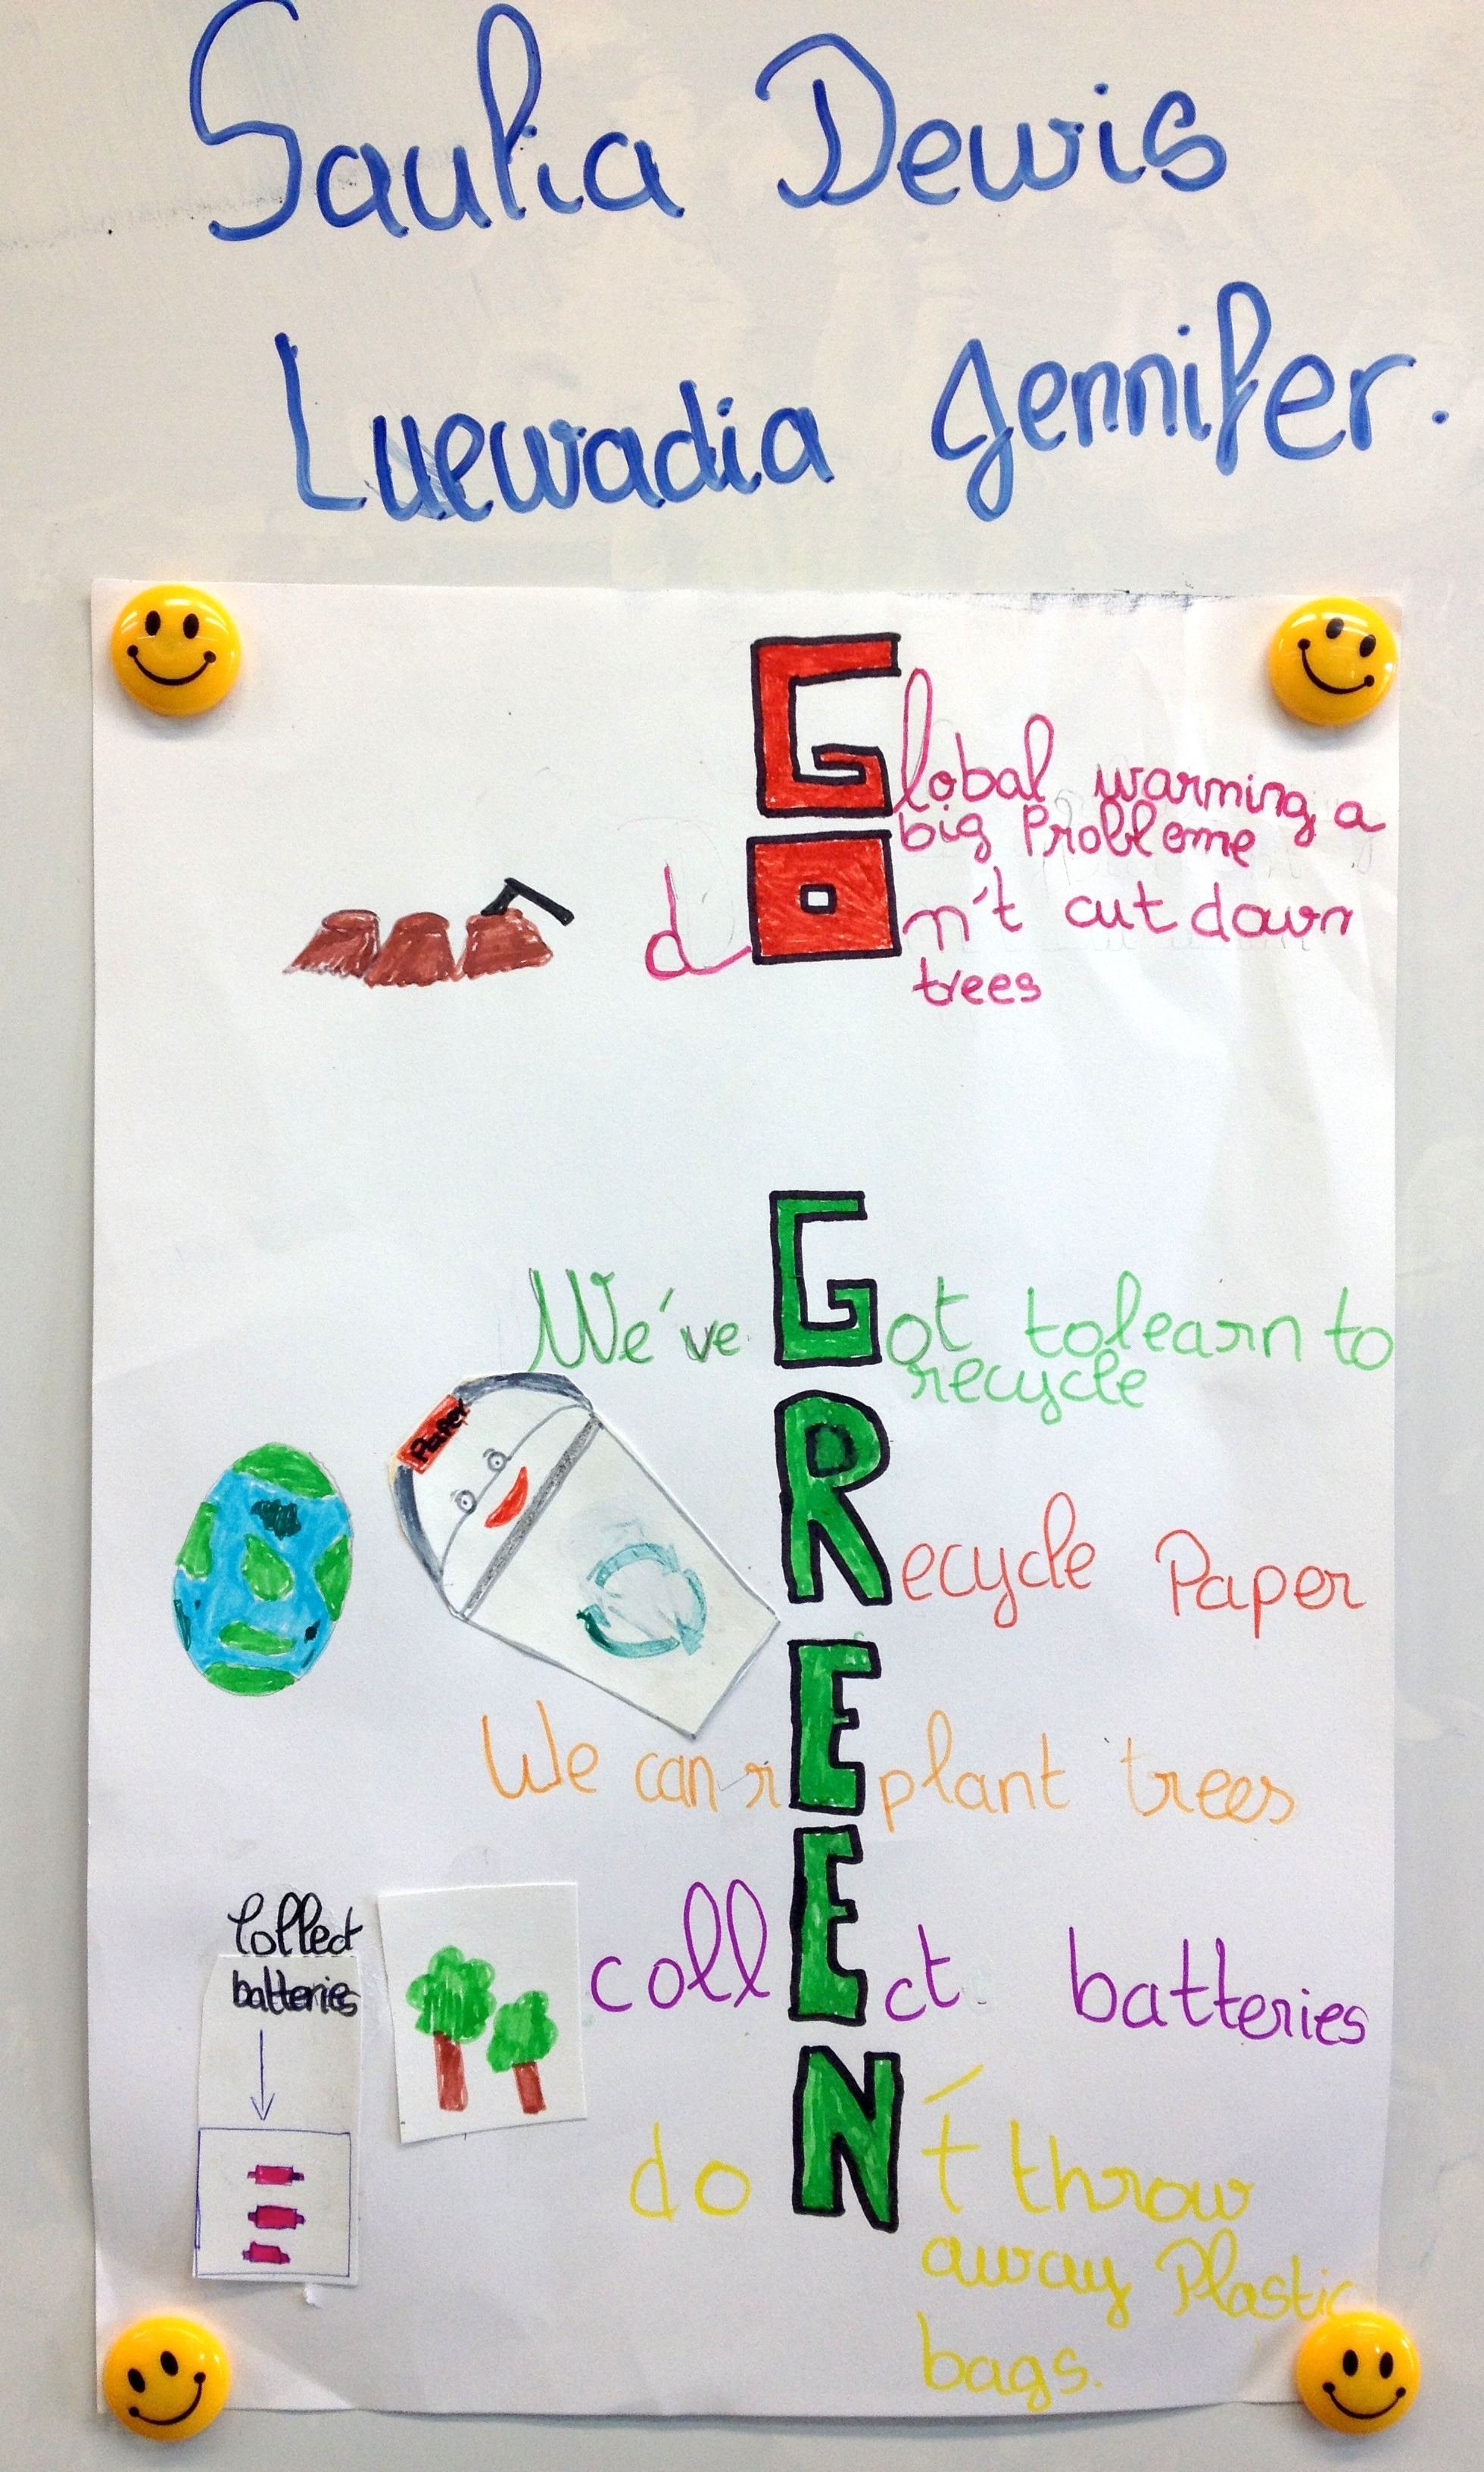 Saulia Dewis
Luewadia Jennifer.
Global warming a
big Probleme
don't cut down
trees
We've Got to learn to
recycle
Paper
Recycle Paper
We can rEplant trees
Collect
batteries
collEct batteries
doN't throw
away Plastic
bags.